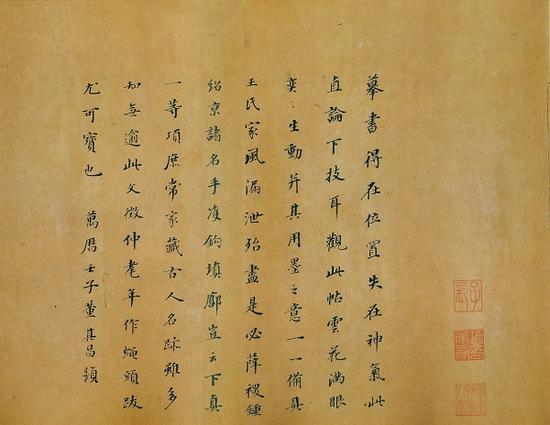 摹書得在位置失在神氣此
直論下技耳觀此帖雲花滿眼
奕〻生動并其用墨之意一一備具
王氏家風漏泄殆盡是必薛稷鍾
紹京諸名手雙鈎填廓豈云下真
一等項庶常家藏古人名跡雖多
知無逾此文徵仲老年作蠅頭跋
尤可寶也 萬曆壬子董其昌題